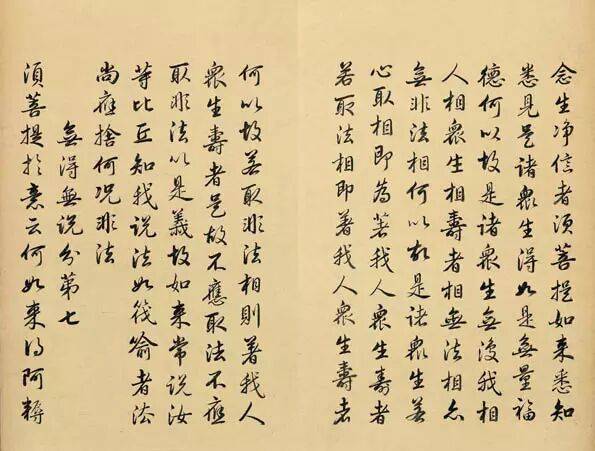 念生净信者須菩提如来悉知
悉見是諸衆生得如是無量福
德何以故是諸衆生無復我相
人相衆生相壽者相無法相亦
無非法相何以故是諸衆生若
心取相即為著我人衆生壽者
若取法相即著我人衆生壽者
何以故若取非法相則著我人
衆生壽者是故不應取法不應
取非法以是義故如来常説汝
等比丘知我説法如筏喻者法
尚應捨何况非法
無得無説分第七
須菩提於意云何如来得阿耨